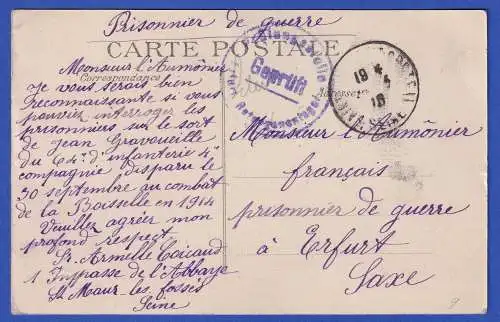 Prisonnier de guerre
CARTE POSTALE
Correspondance
Monsieur l'Aumônier
Je vous serais bien
reconnaissante si vous
pouviez interroger les
prisonniers sur le sort
de Jean Gravouille
du 64e d'infanterie 4e
compagnie disparu le
30 septembre au combat
de la Boisselle en 1914
Veuillez agréer mon
profond respect
Armelle Coicaud
1 Impasse de l'Abbaye
St Maur-les-fossés
Seine
Geprüft
19 4
15
Adresse
Monsieur l'Aumônier
français
prisonnier de guerre
à Erfurt
Saxe